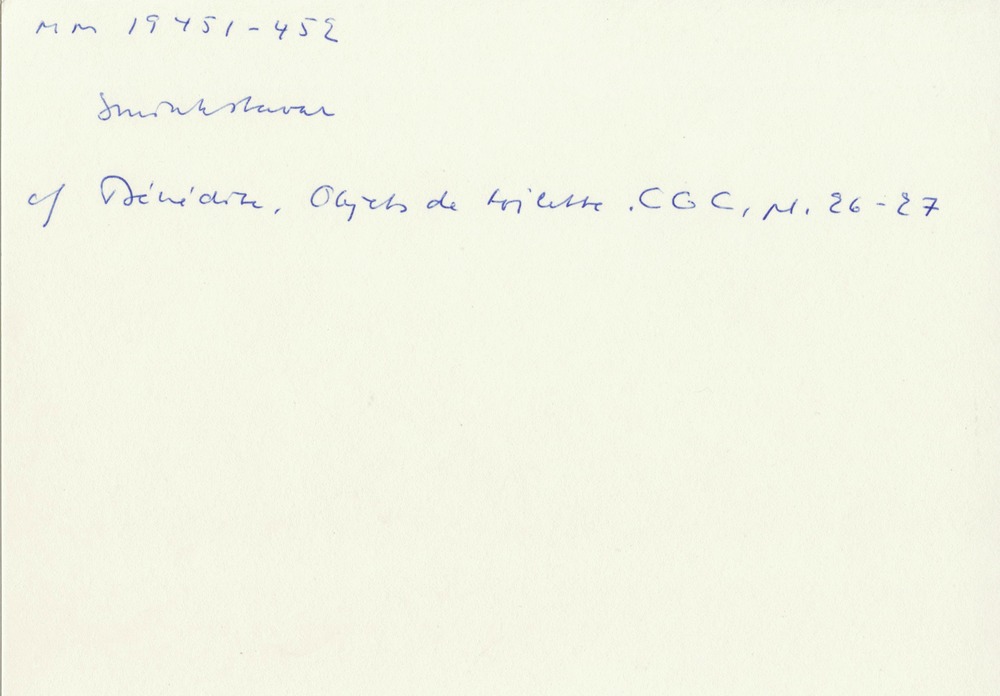 MM 19451-452
Sminkstavar
cf Bénédite, Objets de toilette. CGC, pl. 26-27